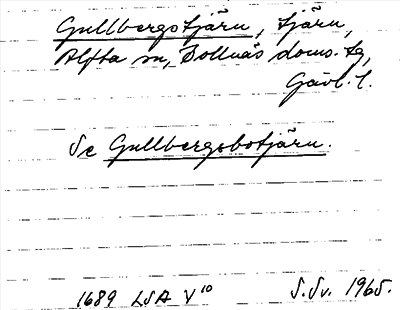 Gullbergstjärn, tjärn,
Alfta sn, Bollnäs doms. tg,
Gävl. l.
Se Gullbergsbotjärn.
1689 LSA V 10 S.Sv. 1965.